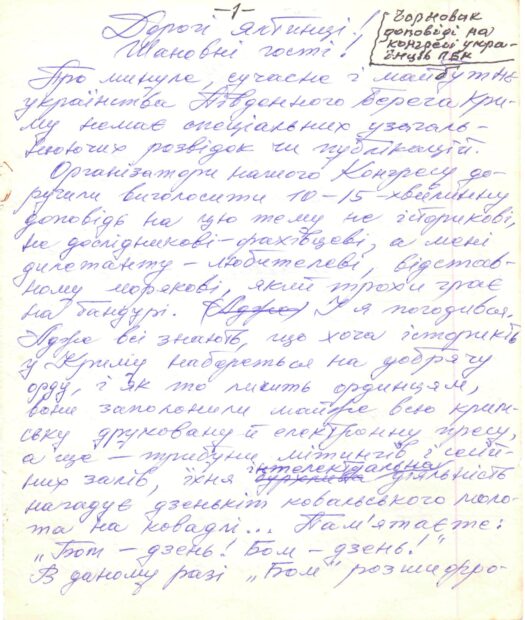 -1-
Чорновик
доповіді на
конгресі укра-
їнців ПБК
Дорогі ялтинці!
Шановні гості!
Про минуле, сучасне і майбутнє
українства Південного берега Кри-
му немає спеціальних узагаль-
нюючих розвідок чи публікацій.
Організатори нашого Конгресу до-
ручили виголосити 10-15-хвилинну
доповідь на цю тему не історикові,
не дослідникові-фахівцеві, а мені
дилетанту-любителеві, відстав-
ному морякові, який трохи грає
на бандурі. (Адже) І я погодився.
Адже всі знають, що хоча істориків
у Криму набереться на добрячу
орду, і як то личить ординцям,
вони заполонили майже всю крим-
ську друковану й електронну пресу,
а ще – трибуни мітингів і сесій-
них залів, їхня інтелектуальна діяльність
нагадує дзенькіт ковальського моло-
та на ковадлі... Пам'ятаєте:
„Бом – дзень! Бом – дзень!"
В даному разі „Бом" розшифро-